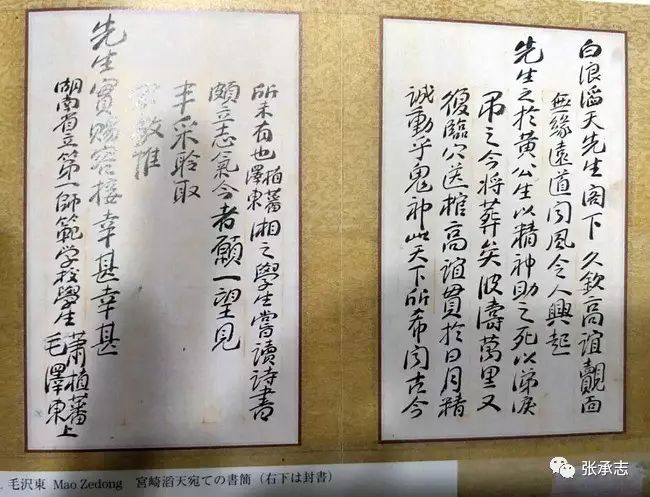 白浪滔天先生閣下 久欽高誼覿面
無緣遠道聞風令人興起
先生之於黃公生以精神助之死以涕淚
弔之今將葬矣波濤萬里又
復臨穴送棺高誼貫於日月精
誠動乎鬼神此天下所希聞古今
所未有也植蕃澤東湘之學生嘗讀詩書
頗立志氣今者願一望見
丰采聆取
教惟
先生實賜容接幸甚幸甚
湖南省立第一師範学校學生蕭植蕃毛澤東上
毛沢東 Mao Zedong 宮崎滔天宛ての書簡（右下は封書）
张承志